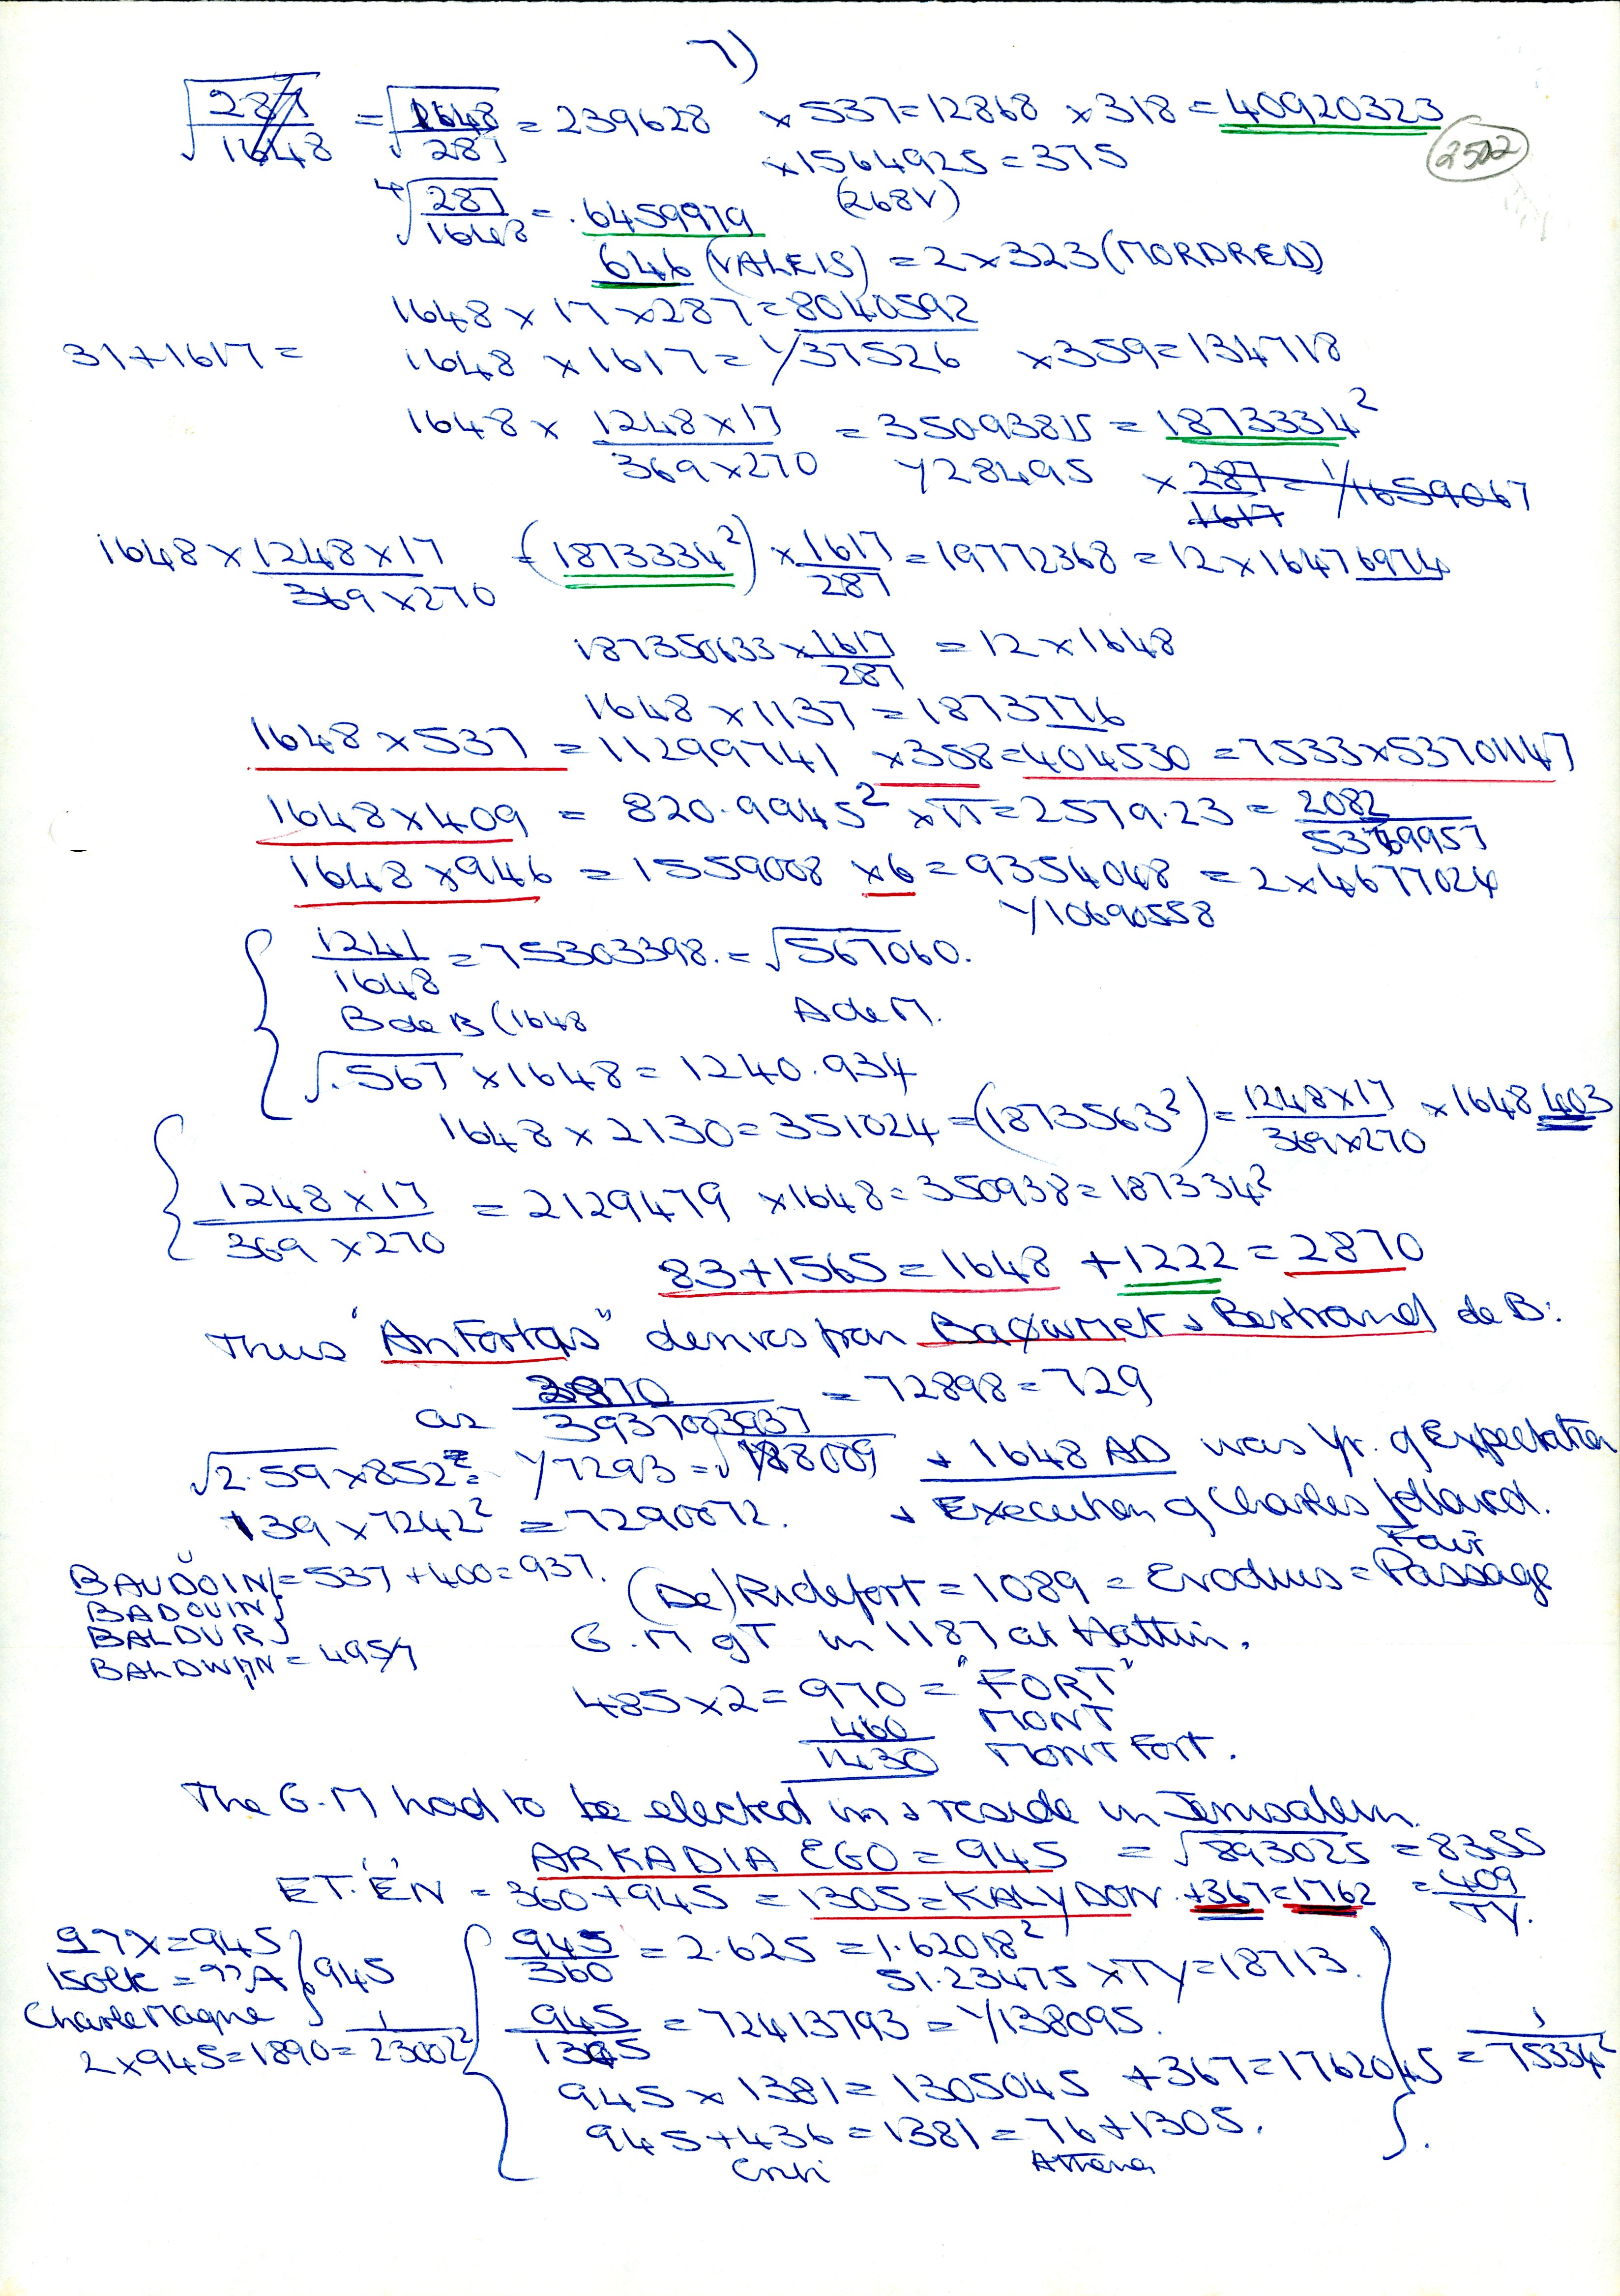 7)
√287/1648 = √1648/287 = 239628 × 537 = 12868 × 318 = 40920323
2502
× 1564925 = 375
(268V)
4√287/1648 = .6459979
646 (VALEIS) = 2 × 323 (MORDRED)
1648 × 17 × 287 = 8040592
31 + 1617 = 1648 × 1617 = 1/37526 × 359 = 134718
1648 × 1248 × 17/369 × 270 = 35093815 = 1873334²
1/28495 × 287/1617 = 1/1659067
1648 × 1248 × 17/369 × 270 = (1873334²) × 1617/287 = 19772368 = 12 × 16476974
187350633 × 1617/287 = 12 × 1648
1648 × 1137 = 1873776
1648 × 537 = 11299741 × 358 = 404530 = 7533 × 53701147
1648 × 409 = 820.9945² × π = 2579.23 = 2082/53769957
1648 × 946 = 1559008 × 6 = 9354048 = 2 × 4677024
1/10690558
1241/1648 = 75303398. = √567060.
B de B (1648 A de M.
√.567 × 1648 = 1240.934
1648 × 2130 = 351024 = (1873563²) = 1248 × 17/369 × 270 × 1648403
1248 × 17/369 × 270 = 2129479 × 1648 = 350938 = 187334²
83 + 1565 = 1648 + 1222 = 2870
Thus "AnFortas" derives from & Bertrand de B:
as 2870/3937003937 = 72898 = 729
√2.59 × 852² = 1/7293 = √188009 + 1648 AD was yr. of Expectation
139 × 7242² = 7290072. + Execution of Charles
Fair
BAUDOIN = 537 + 400 = 937.
BADOUIN
BALDUR
BALDWIN = 495/7
(De) Ridefort = 1089 = Exodus = Passage
G.M of T in 1187 at Hattin.
485 × 2 = 970 = "FORT"
460 MONT
1430 MONT FORT.
The G.M had to be elected in & reside in Jerusalem
ARKADIA EGO = 945 = √893025 = 8355
ET. ÉN = 360 + 945 = 1305 = KALYDON. + 367 = 1762 = 409/TY.
27X = 945
= 945
CharleMagne
2 × 945 = 1890 = 1/23002²
945/360 = 2.625 = 1.62018²
51.23475 × TY = 18713.
945/1305 = 72413793 = 1/138095.
945 × 1381 = 1305045 + 367 = 1762045 = 1/75334²
945 + 436 = 1381 = 76 + 1305.
Athena